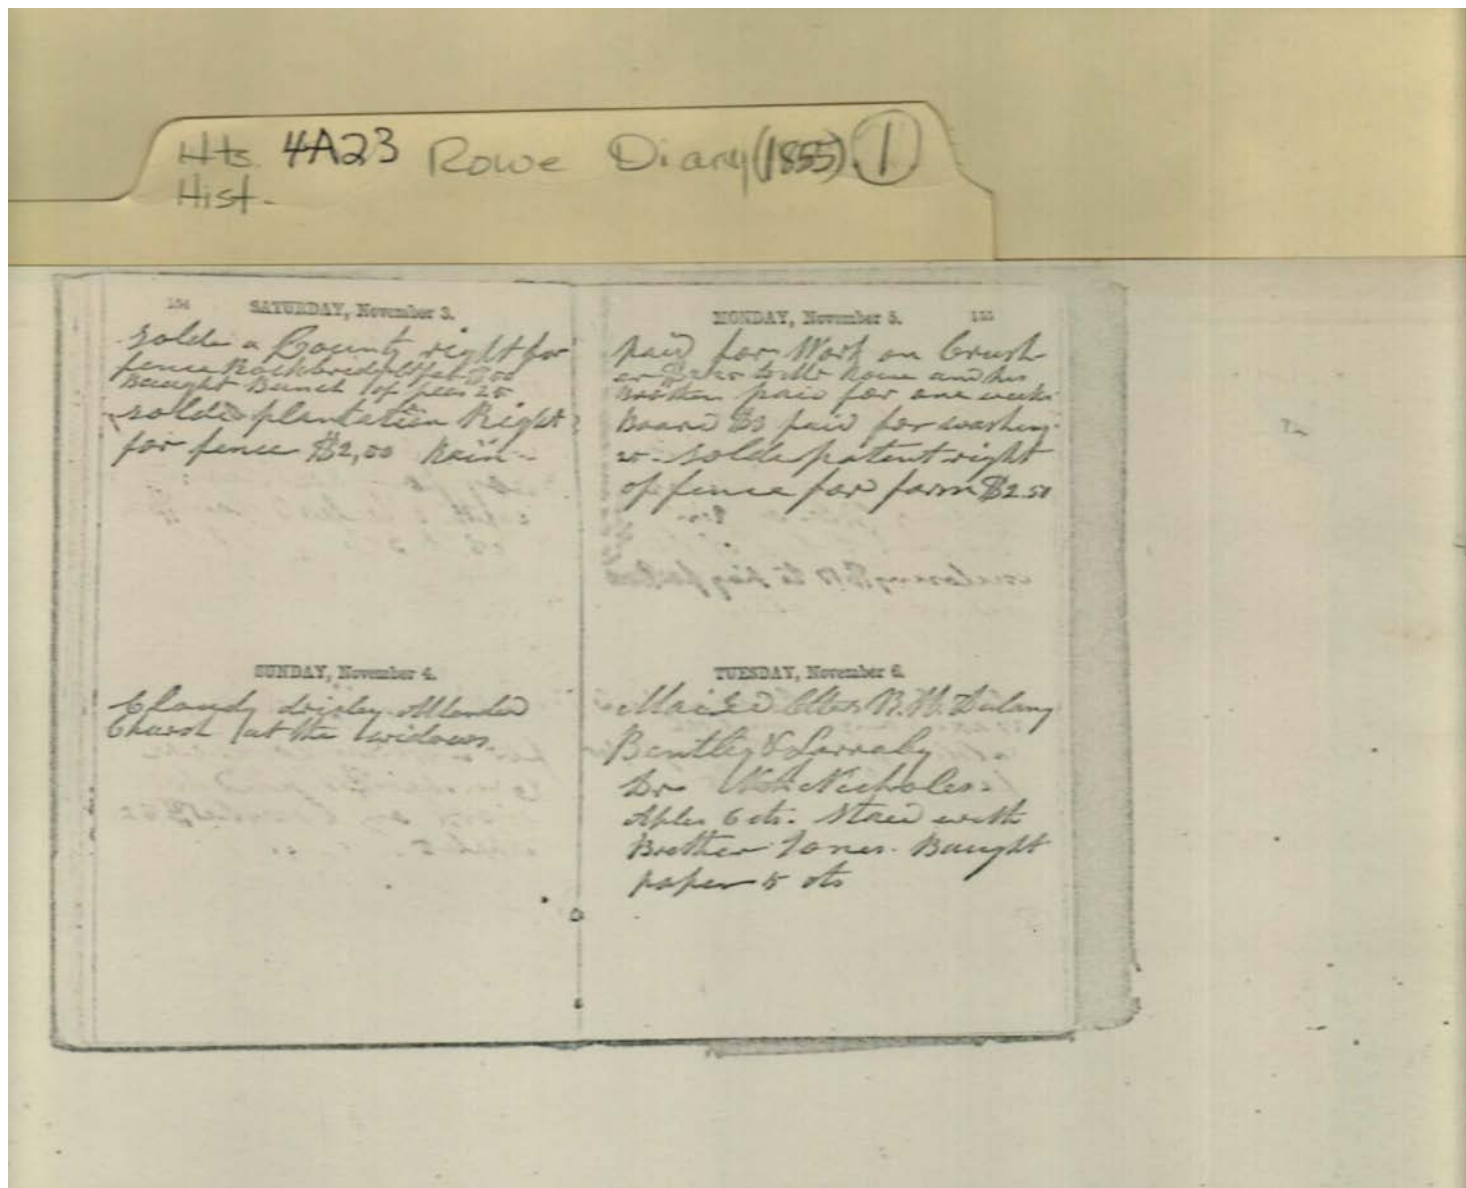 Hts. 4A23 Rowe Diary (1855) 1
Hist.
154 SATURDAY, November 3.
Solde a County right for
fence Rockbredg
Baught Bunch of pees 25
solde plantation Right
for fence $2,00 Rain
SUNDAY, November 4.
Cloudy drisley Attended
Church at the widows
MONDAY, November 5. 155
paid for Work on Crush
er to Mr Rowe and his
Brother paid for one weeks
Board $3 paid for washing
25 - solde patent right
of fence for farm $2.50
TUESDAY, November 6.
Mailed letters B. H. Dulany
Bentley & Larraby
Dr Nicholes
Aples 6 cts. Staed with
Brother Jones. Baught
paper 5 cts